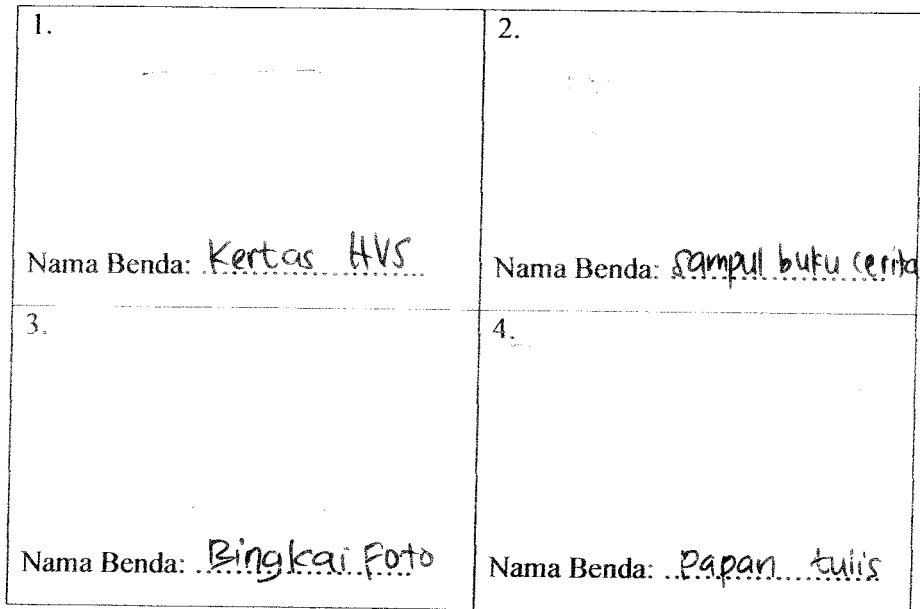 1.
2.
Nama Benda: Kertas HVS
Nama Benda: Sampul buku cerita
3.
4.
Nama Benda: Bingkai Foto
Nama Benda: Papan tulis